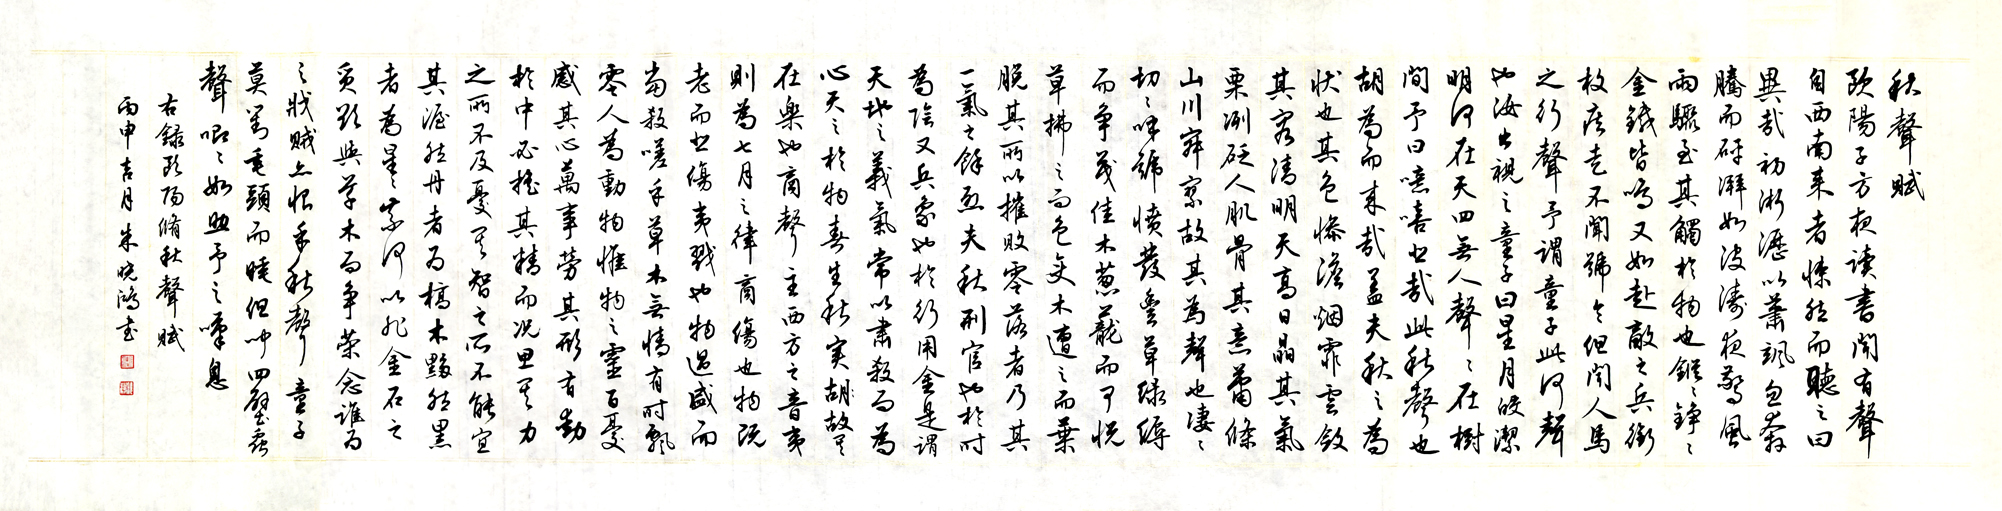 秋聲賦
歐陽子方夜读書闻有聲
自西南来者悚然而聽之曰
異哉初淅瀝以蕭颯忽奔
騰而砰湃如波濤夜驚風
雨驟至其觸於物也鏦〻錚〻
金鐵皆鸣又如赴敵之兵銜
枚疾走不聞號令但闻人馬
之行聲予謂童子此何聲
也汝出視之童子曰星月皎潔
明河在天四無人聲〻在樹
間予曰噫嘻悲哉此秋聲也
胡為而来哉盖夫秋之為
狀也其色惨澹烟霏雲斂
其容清明天高日晶其氣
栗冽砭人肌骨其意蕭條
山川寂寥故其為聲也淒〻
切〻呼號憤發豐草绿縟
而争茂佳木葱蘢而可悦
草拂之而色变木遭之而葉
脱其所以摧敗零落者乃其
一氣之餘烈夫秋刑官也於时
為陰又兵象也於行用金是謂
天地之義氣常以肃殺而為
心天之於物春生秋实胡故其
在樂也商聲主西方之音夷
則為七月之律商傷也物既
老而悲傷夷戮也物過盛而
當殺嗟乎草木無情有时飘
零人為動物惟物之靈百憂
感其心萬事勞其形有動
於中必摇其精而况思其力
之所不及憂其智之所不能宜
其渥然丹者为槁木黟然黑
者為星〻奈何以非金石之
質欲與草木而争荣念谁为
之戕賊亦恨乎秋聲童子
莫对垂頭而睡但闻四壁虫
聲唧〻如助予之嘆息
右録欧陽脩秋聲賦
丙申吉月朱晓鴻書